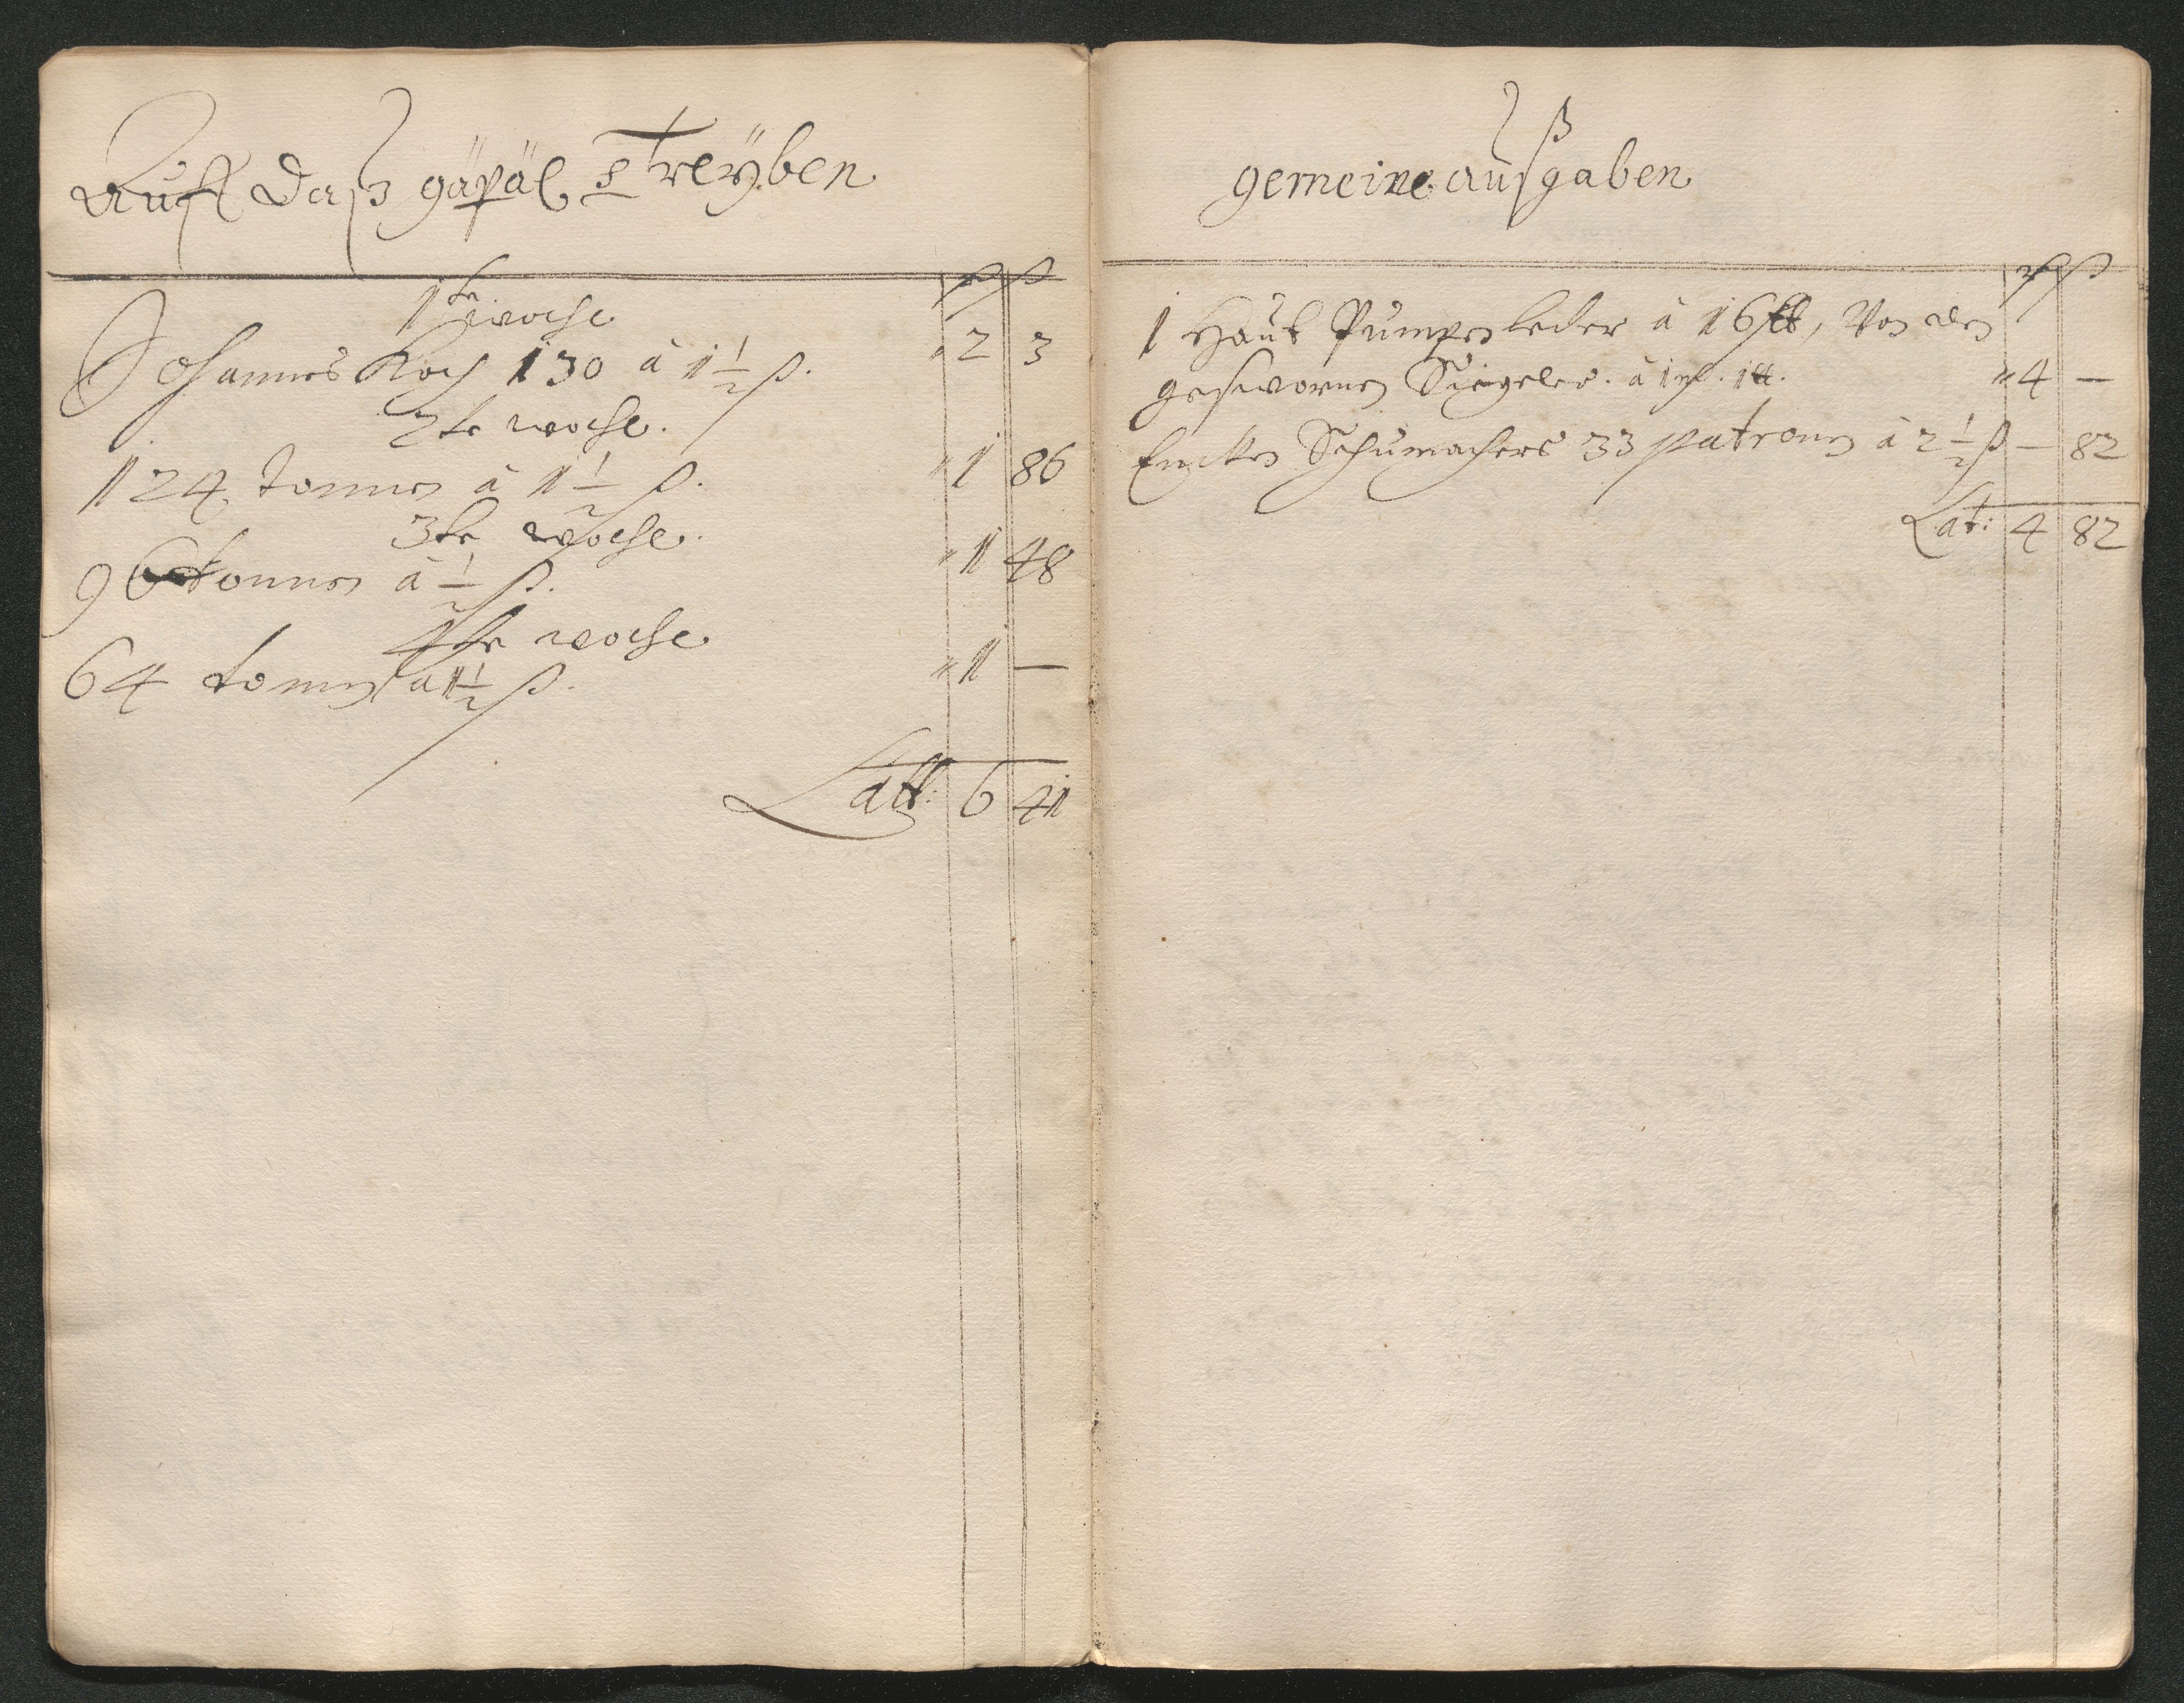 Auff daß gäpäl Treÿben
rß ß
1te woche
Johannes Koch 130 â 1 1/2 ß. " 2 3
2te woche.
124 tonnen â 1 1/2 ß. " 1 86
3te woche.
96 tonnen â 1/2 ß. " 1 48
4te woche
64 tonnen â 1 1/2 ß. " 1 —
Latt: 6 41
gemeine außgaben
ß
1 Haut Pumpen leder â 16 ℔, Von den
geschwornen Siegeler. â 1 ℔. " 4 —
Schumachers 33 patronen â 2 1/2 ß — 82
Lat: 4 82